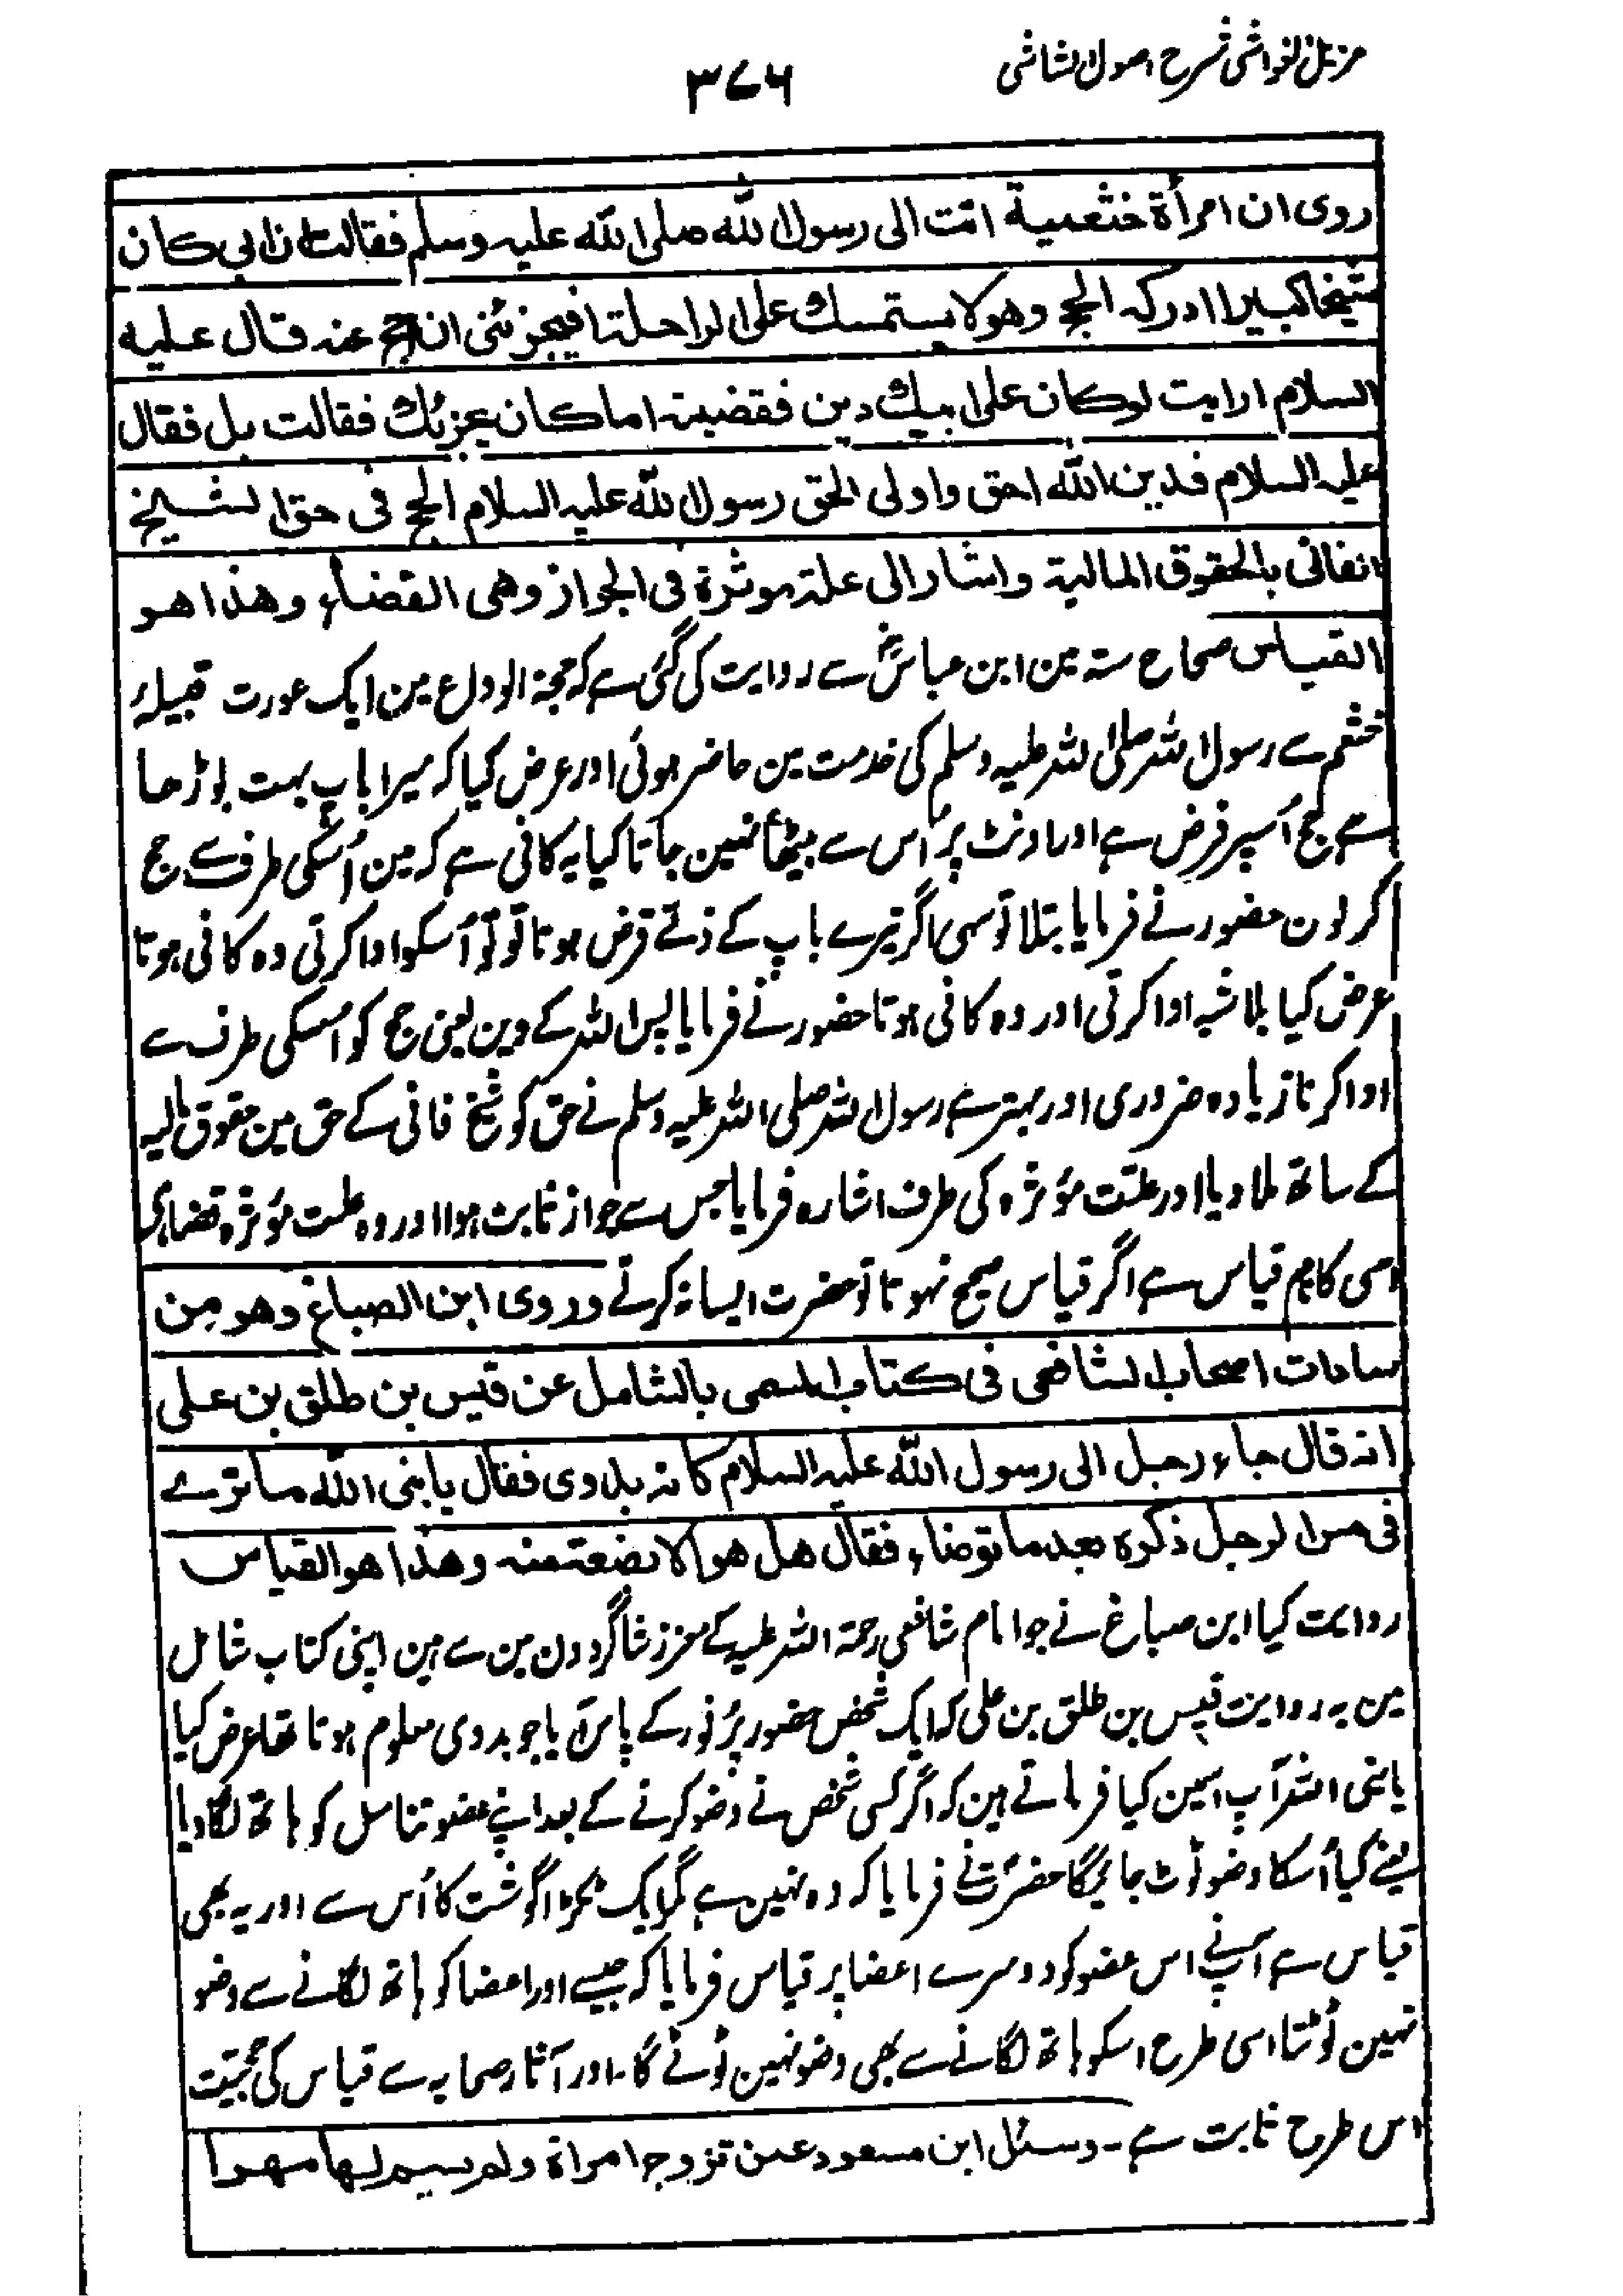 مزیل الغواشی شرح اصول الشاشی
۳۷۶
روی ان امرأة خثعمیة اتت الی رسول الله صلی الله علیه وسلم فقالت ان ابی کان
شیخا کبیرا ادرکه الحج وهو لا یستمسک علی الراحلة افیجزئنی ان احج عنه قال علیه
السلام ارایت لو کان علی ابیک دین فقضیته اما کان یجزئک فقالت بلی فقال
علیه السلام فدین الله احق واولی الحق رسول الله علیه السلام الحج فی حق الشیخ
الفانی بالحقوق المالیة واشار الی علة موثرة فی الجواز وهی القضاء وهذا هو
القیاس صحاح ستہ مین ابن عباسؓ سے روایت کی گئی ہے کہ حجۃ الوداع مین ایک عورت قبیلۂ
خثعم سے رسول اللہ صلی اللہ علیہ وسلم کی خدمت مین حاضر ہوئی اور عرض کیا کہ میرا باپ بہت بوڑھا
ہے حج اُسپر فرض ہے اور اونٹ پر اُس سے بیٹھا نہین جاتا کیا یہ کافی ہے کہ مین اُسکی طرف سے حج
کر لون حضور نے فرمایا بتلا تو سہی اگر تیرے باپ کے ذمّے قرض ہوتا تو تو اُسکو ادا کرتی وہ کافی ہوتا
عرض کیا بلا شبہ ادا کرتی اور وہ کافی ہوتا حضور نے فرمایا پس اللہ کے دین یعنی حج کو اُسکی طرف سے
ادا کرنا زیادہ ضروری اور بہتر ہے رسول اللہ صلی اللہ علیہ وسلم نے حق کو شیخ فانی کے حق مین حقوق مالیہ
کے ساتھ ملا دیا اور علّت مؤثرہ کی طرف اشارہ فرمایا جس سے جواز ثابت ہوا اور وہ علت مؤثرہ قضا ہی
اسی کا نام قیاس ہے اگر قیاس صحیح نہوتا تو حضرت ایسا نہ کرتے وروی ابن الصباغ وهو من
سادات اصحاب الشافعی فی کتابه المسمی بالشامل عن قیس بن طلق بن علی
انه قال جاء رجل الی رسول الله علیه السلام کانه بدوی فقال یا نبی الله ما ترے
فی مس الرجل ذکره بعد ما توضاء فقال هل هو الا بضعة منه وهذا هو القیاس
روایت کیا ابن صباغ نے جو امام شافعی رحمۃ اللہ علیہ کے معزز شاگردون مین سے ہین اپنی کتاب شامل
مین یہ روایت قیس بن طلق بن علی کہ ایک شخص حضور پُر نور کے پاس آیا جو بدوی معلوم ہوتا تھا عرض کیا
یا نبی اللہ آپ اسمین کیا فرماتے ہین کہ اگر کسی شخص نے وضو کرنے کے بعد اپنے عضو تناسل کو ہاتھ لگا دیا
یعنے کیا اُسکا وضو ٹوٹ جائیگا حضرتؐ نے فرمایا کہ وہ نہین ہے مگر ایک ٹکڑا گوشت کا اُس سے اور یہ بھی
قیاس ہے آپنے اس عضو کو دوسرے اعضا پر قیاس فرمایا کہ جیسے اور اعضا کو ہاتھ لگانے سے وضو
نہین ٹوٹتا اسی طرح اسکو ہاتھ لگانے سے بھی وضو نہین ٹوٹے گا۔ اور آثار صحابہ سے قیاس کی حجیّت
اس طرح ثابت ہے۔ وسئل ابن مسعود عمن تزوج امراة ولم یسم لها مهرا